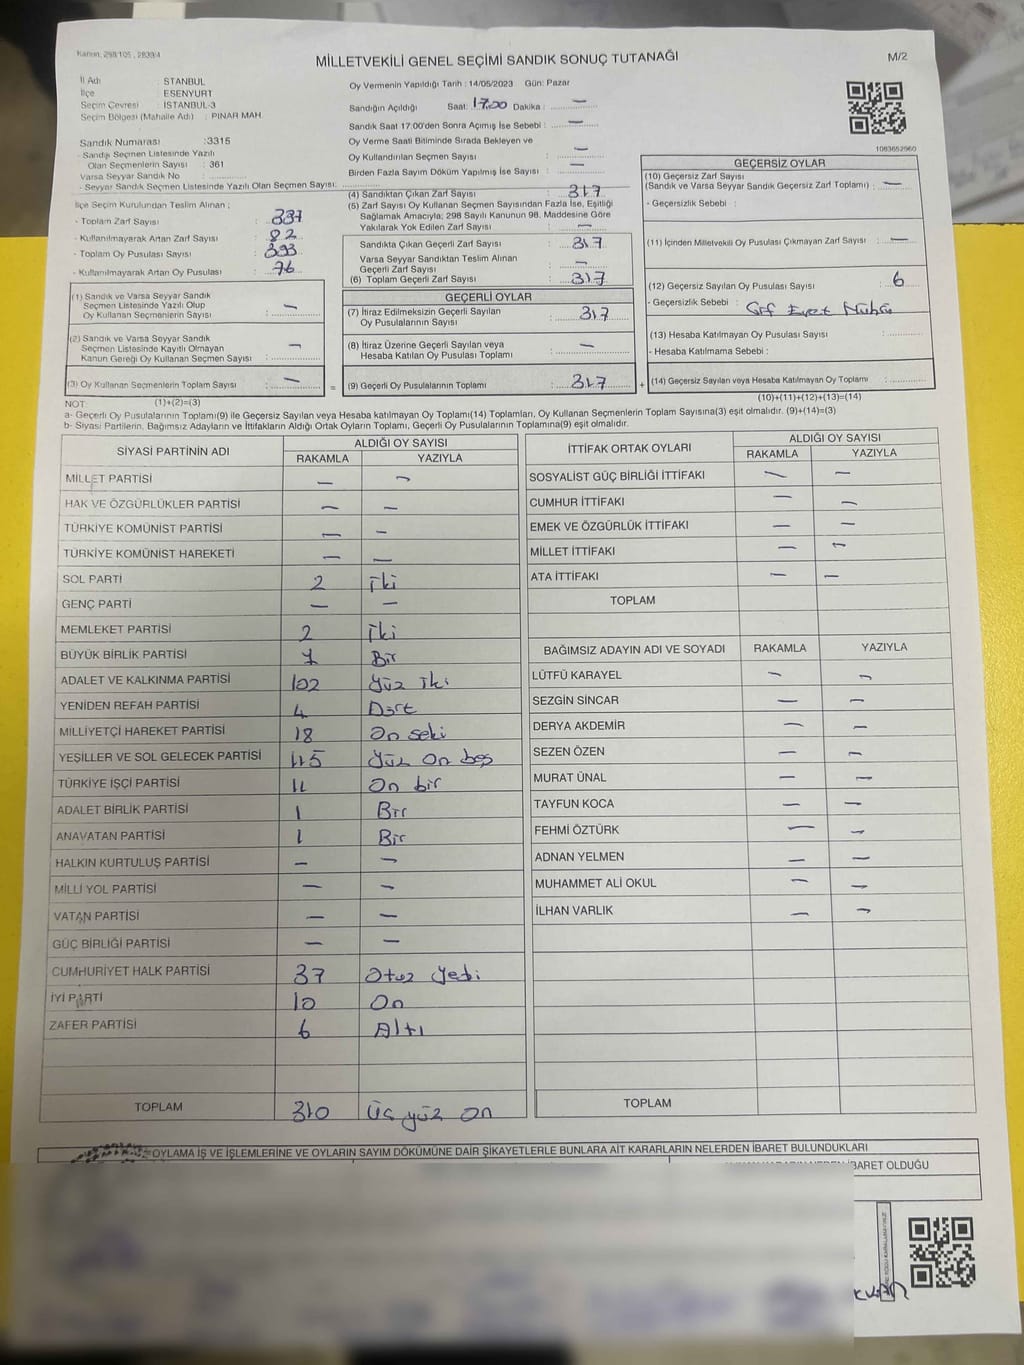 Kanun: 298/105, 2839/4
MİLLETVEKİLİ GENEL SEÇİMİ SANDIK SONUÇ TUTANAĞI
M/2
İl Adı : STANBUL
İlçe : ESENYURT
Seçim Çevresi : İSTANBUL-3
Seçim Bölgesi (Mahalle Adı) : PINAR MAH.
Sandık Numarası :3315
- Sandığı Seçmen Listesinde Yazılı
Olan Seçmenlerin Sayısı : 361
Varsa Seyyar Sandık No :
- Seyyar Sandık Seçmen Listesinde Yazılı Olan Seçmen Sayısı:
İlçe Seçim Kurulundan Teslim Alınan ;
- Toplam Zarf Sayısı :
- Kullanılmayarak Artan Zarf Sayısı : 82
- Toplam Oy Pusulası Sayısı : 393
- Kullanılmayarak Artan Oy Pusulası : 76
(1) Sandık ve Varsa Seyyar Sandık
Seçmen Listesinde Yazılı Olup
Oy Kullanan Seçmenlerin Sayısı : —
(2) Sandık ve Varsa Seyyar Sandık
Seçmen Listesinde Kayıtlı Olmayan
Kanun Gereği Oy Kullanan Seçmen Sayısı : —
(3) Oy Kullanan Seçmenlerin Toplam Sayısı : — =
(1)+(2)=(3)
Oy Vermenin Yapıldığı Tarih : 14/05/2023 Gün: Pazar
Sandığın Açıldığı Saat: 17.00 Dakika : —
Sandık Saat 17.00'den Sonra Açımış İse Sebebi : —
Oy Verme Saati Bitiminde Sırada Bekleyen ve
Oy Kullandırılan Seçmen Sayısı : —
Birden Fazla Sayım Döküm Yapılmış İse Sayısı : —
(4) Sandıktan Çıkan Zarf Sayısı : 317
(5) Zarf Sayısı Oy Kullanan Seçmen Sayısından Fazla İse, Eşitliği
Sağlamak Amacıyla; 298 Sayılı Kanunun 98. Maddesine Göre
Yakılarak Yok Edilen Zarf Sayısı : —
Sandıkta Çıkan Geçerli Zarf Sayısı : 317
Varsa Seyyar Sandıktan Teslim Alınan
Geçerli Zarf Sayısı : —
(6) Toplam Geçerli Zarf Sayısı : 317
GEÇERLİ OYLAR
(7) İtiraz Edilmeksizin Geçerli Sayılan
Oy Pusulalarının Sayısı : 317
(8) İtiraz Üzerine Geçerli Sayılan veya
Hesaba Katılan Oy Pusulası Toplamı : —
(9) Geçerli Oy Pusulalarının Toplamı : 317 +
1083652960
GEÇERSİZ OYLAR
(10) Geçersiz Zarf Sayısı
(Sandık ve Varsa Seyyar Sandık Geçersiz Zarf Toplamı) : —
- Geçersizlik Sebebi :
(11) İçinden Milletvekili Oy Pusulası Çıkmayan Zarf Sayısı : —
(12) Geçersiz Sayılan Oy Pusulası Sayısı : 6
- Geçersizlik Sebebi : Evet
(13) Hesaba Katılmayan Oy Pusulası Sayısı :
- Hesaba Katılmama Sebebi :
(14) Geçersiz Sayılan veya Hesaba Katılmayan Oy Toplamı :
(10)+(11)+(12)+(13)=(14)
NOT:
a- Geçerli Oy Pusulaları Toplamı(9) ile Geçersiz Sayılan veya Hesaba katılmayan Oy Toplamı(14) Toplamları, Oy Kullanan Seçmenlerin Toplam Sayısına(3) eşit olmalıdır. (9)+(14)=(3)
b- Siyasi Partilerin, Bağımsız Adayların ve İttifakların Aldığı Ortak Oyların Toplamı, Geçerli Oy Pusulalarının Toplamına(9) eşit olmalıdır.
SİYASİ PARTİNİN ADI ALDIĞI OY SAYISI
RAKAMLA YAZIYLA
MİLLET PARTİSİ — —
HAK VE ÖZGÜRLÜKLER PARTİSİ — —
TÜRKİYE KOMÜNİST PARTİSİ — —
TÜRKİYE KOMÜNİST HAREKETİ — —
SOL PARTİ 2 İki
GENÇ PARTİ — —
MEMLEKET PARTİSİ 2 İki
BÜYÜK BİRLİK PARTİSİ 1 Bir
ADALET VE KALKINMA PARTİSİ 102 Yüz iki
YENİDEN REFAH PARTİSİ 4 Dört
MİLLİYETÇİ HAREKET PARTİSİ 18 On seki
YEŞİLLER VE SOL GELECEK PARTİSİ 115 Yüz on beş
TÜRKİYE İŞÇİ PARTİSİ 11 On bir
ADALET BİRLİK PARTİSİ 1 Bir
ANAVATAN PARTİSİ 1 Bir
HALKIN KURTULUŞ PARTİSİ — —
MİLLİ YOL PARTİSİ — —
VATAN PARTİSİ — —
GÜÇ BİRLİĞİ PARTİSİ — —
CUMHURİYET HALK PARTİSİ 37 Otuz Yedi
İYİ PARTİ 10 On
ZAFER PARTİSİ 6 Altı
TOPLAM 310 Üç yüz on
İTTİFAK ORTAK OYLARI ALDIĞI OY SAYISI
RAKAMLA YAZIYLA
SOSYALİST GÜÇ BİRLİĞİ İTTİFAKI — —
CUMHUR İTTİFAKI — —
EMEK VE ÖZGÜRLÜK İTTİFAKI — —
MİLLET İTTİFAKI — —
ATA İTTİFAKI — —
TOPLAM
BAĞIMSIZ ADAYIN ADI VE SOYADI RAKAMLA YAZIYLA
LÜTFÜ KARAYEL — —
SEZGİN SİNCAR — —
DERYA AKDEMİR — —
SEZEN ÖZEN — —
MURAT ÜNAL — —
TAYFUN KOCA — —
FEHMİ ÖZTÜRK — —
ADNAN YELMEN — —
MUHAMMET ALİ OKUL — —
İLHAN VARLIK — —
TOPLAM
OYLAMA İŞ VE İŞLEMLERİNE VE OYLARIN SAYIM DÖKÜMÜNE DAİR ŞİKAYETLERLE BUNLARA AİT KARARLARIN NELERDEN İBARET BULUNDUKLARI
İBARET OLDUĞU